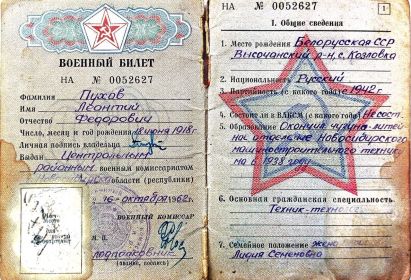 ВОЕННЫЙ БИЛЕТ
НА № 0052627
Фамилия Пухов
Имя Леонтий
Отчество Федорович
Число, месяц и год рождения 18 июня 1918 г.
Личная подпись владельца
Выдан Центральным
районным военным комиссариатом
области (республики)
16 октября 1962 г.
ВОЕННЫЙ КОМИССАР
подполковник
(звание, подпись)
Место
для
НА № 0052627
1
I. Общие сведения
1. Место рождения Белорусская ССР
Высочанский р-н, с. Козловка
2. Национальность Русский
3. Партийность (с какого года) с 1942 г.
4. Состоит ли в ВЛКСМ (с какого года) Не сост.
5. Образование Окончил
ное отделение Новосибирского
машиностроительного техник
ма в 1938 году
6. Основная гражданская специальность
Техник-технолог
7. Семейное положение жена
Лидия Семеновна